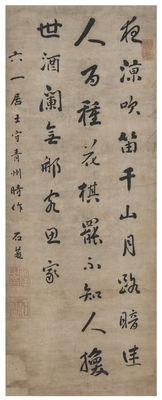 夜涼吹笛千山月路暗迷
人百種花棋罷不知人換
世酒闌無那客思家
六一居士守青州時作 石菴